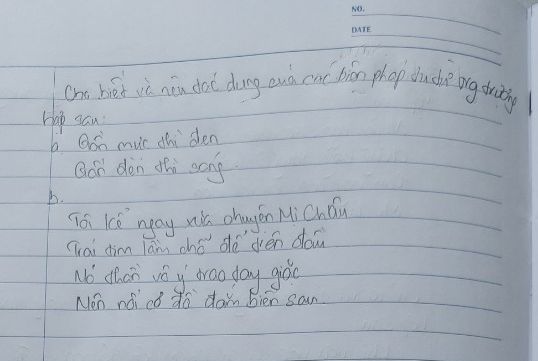 NO.
DATE
Cho biết và nêu tác dụng của các biện pháp tu từ trong trường
hợp sau:
a. Gần mực thì đen
Gần đèn thì sáng
b.
Tôi kể ngày xưa chuyện Mị Châu
Trái tim lầm chỗ để trên đầu
Nỏ thần vô ý trao tay giặc
Nên nỗi cơ đồ đắm biển sâu.